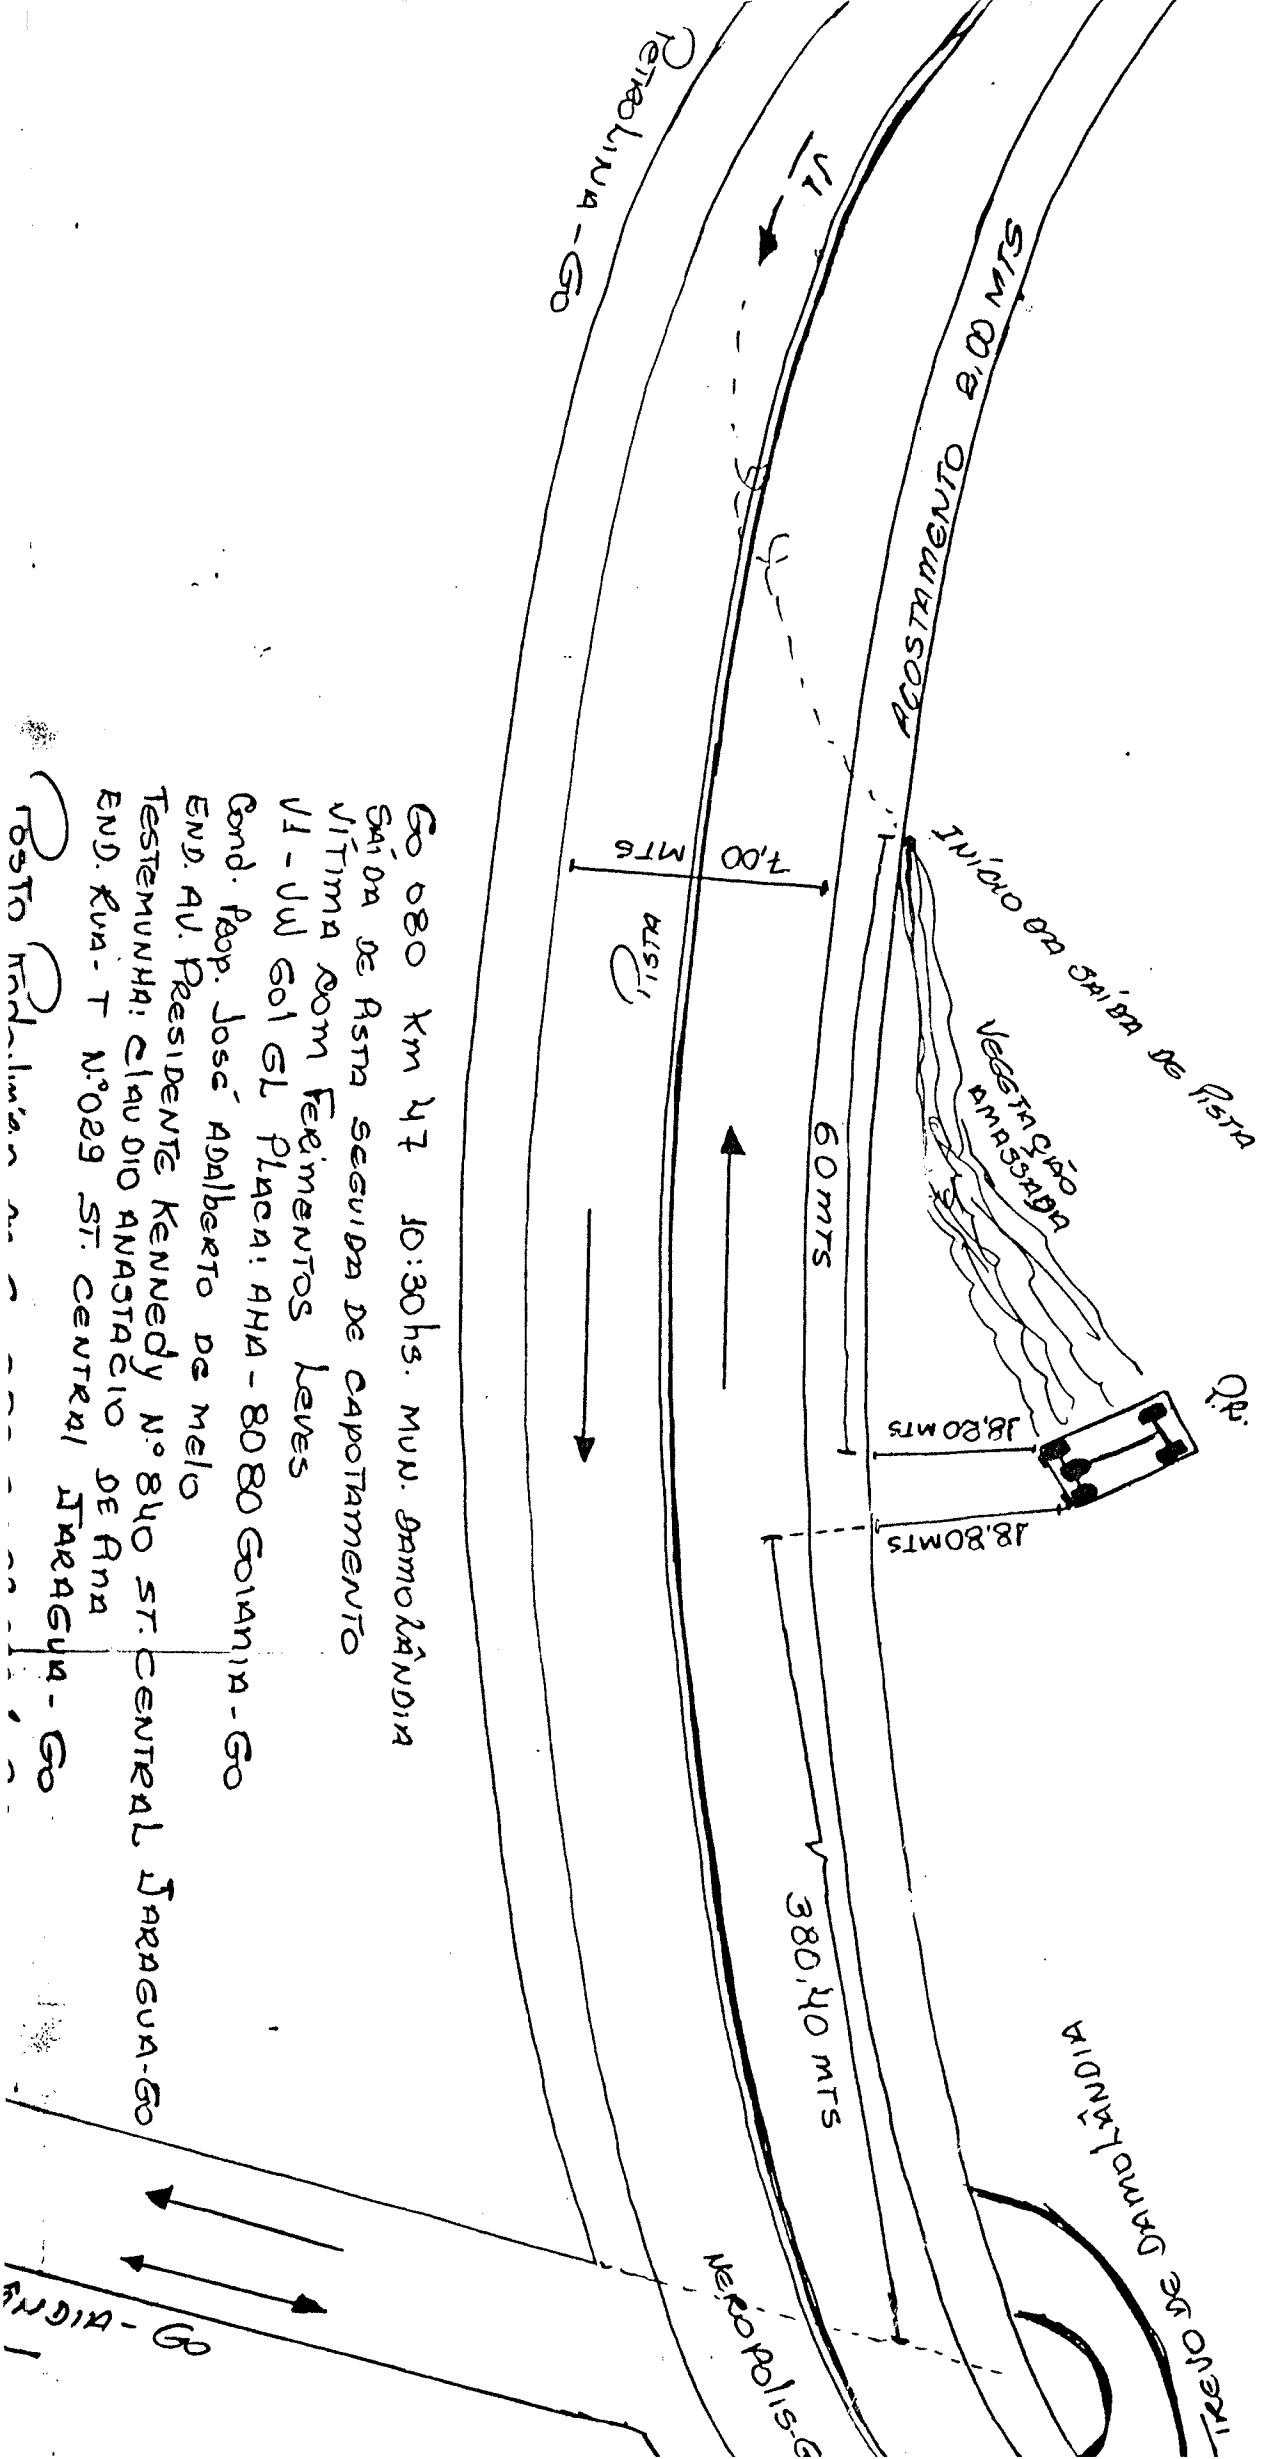 PETROLINA - GO
V1
ACOSTAMENTO 2,00 MTS
INÍCIO DA SAÍDA DE PISTA
VEGETAÇÃO
AMASSADA
P.R.
7,00 MTS
60 MTS
18,20 MTS
18,80 MTS
380,40 MTS
TREVO DE DAMOLÂNDIA
NEROPOLIS-G
- GO
GO 080 Km 47 10:30hs. MUN. DAMOLÂNDIA
SAÍDA DE PISTA SEGUIDA DE CAPOTAMENTO
VÍTIMA COM FERIMENTOS LEVES
V1 - VW GOL GL PLACA: AHA - 8080 GOIANIA - GO
Cond. Prop. JOSÉ ADALBERTO DE MELO
END. AV. PRESIDENTE KENNEDY N.º 840 ST. CENTRAL JARAGUA-GO
TESTEMUNHA: CLAUDIO ANASTACIO DE
END. RUA - T N.º 029 ST. CENTRAL JARAGUA - GO
POSTO